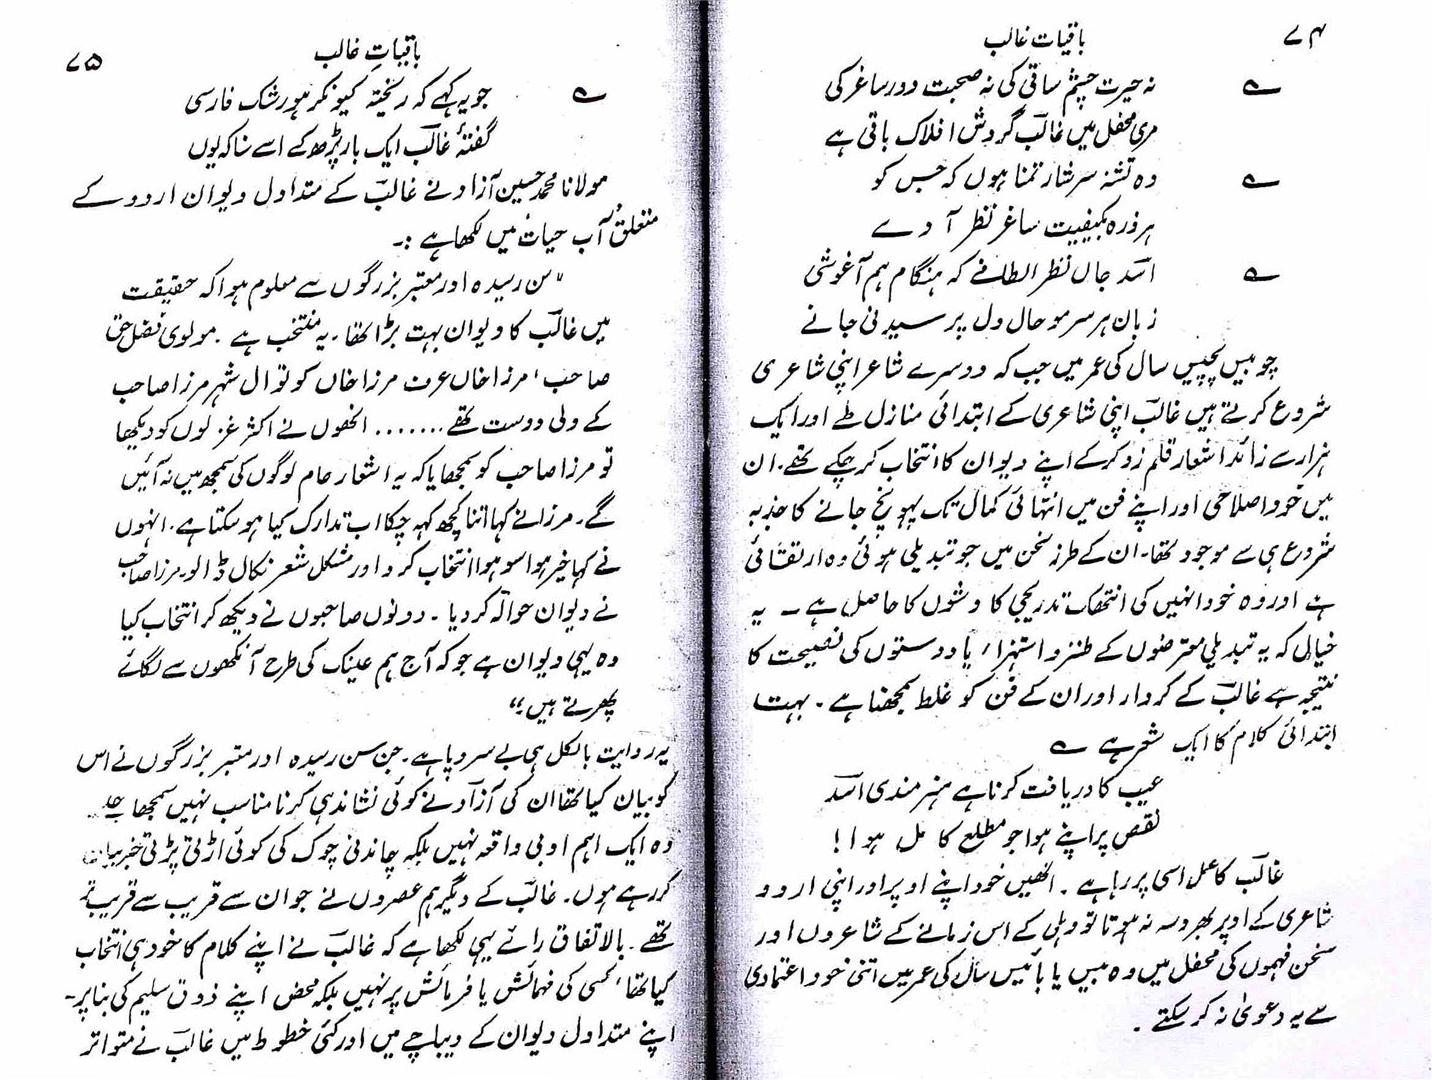 ۷۴
باقیات غالب
نہ حیرت چشم ساقی کی نہ صحبت دور ساغر کی
مری محفل میں غالبؔ گردش افلاک باقی ہے
وہ تشنہ سرشار تمنا ہوں کہ جس کو
ہر ذرہ بکیفیت ساغر نظر آ دے
اسدؔ جاں نظر الطافے کہ ہنگام ہم آغوشی
زبان ہر سر مو حال دل پرسیدنی جانے
چوبیس پچیس سال کی عمر میں جب کہ دوسرے شاعر اپنی شاعری
شروع کرتے ہیں غالبؔ اپنی شاعری کے ابتدائی منازل طے اور ایک
ہزار سے زائد اشعار قلم زد کرکے اپنے دیوان کا انتخاب کر چکے تھے۔ ان
میں خود اصلاحی اور اپنے فن میں انتہائی کمال تک پہونچ جانے کا جذبہ
شروع ہی سے موجود تھا۔ ان کے طرز سخن میں جو تبدیلی ہوئی وہ ارتقائی
ہے اور وہ خود انہیں کی انتھک تدریجی کاوشوں کا حاصل ہے ــ یہ
خیال کہ یہ تبدیلی معترضوں کے طنز و استہزاء یا دوستوں کی نصیحت کا
نتیجہ ہے غالبؔ کے کردار اور ان کے فن کو غلط سمجھنا ہے۔ بہت
ابتدائی کلام کا ایک شعر ہے
عیب کا دریافت کرنا ہے ہنرمندی اسدؔ
نقص پر اپنے ہوا جو مطلع کامل ہوا!
غالبؔ کا عمل اسی پر رہا ہے۔ انھیں خود اپنے اوپر اور اپنی اردو
شاعری کے اوپر بھروسہ نہ ہوتا تو دہلی کے اس زمانے کے شاعروں اور
سخن فہموں کی محفل میں وہ بیس یا بائیس سال کی عمر میں اتنی خود اعتمادی
سے یہ دعویٰ نہ کر سکتے۔
۷۵
باقیاتِ غالب
جو یہ کہے کہ ریختہ کیونکر ہو رشک فارسی
گفتۂ غالبؔ ایک بار پڑھ کے اسے سنا کہ یوں
مولانا محمد حسین آزاد نے غالبؔ کے متداول دیوان اردو کے
متعلق آب حیات میں لکھا ہے :۔
"سن رسیدہ اور معتبر بزرگوں سے معلوم ہوا کہ حقیقت
میں غالبؔ کا دیوان بہت بڑا تھا۔ یہ منتخب ہے۔ مولوی فضل حق
صاحب، مرزا خاں عرف مرزا خاں کوتوال شہر مرزا صاحب
کے دلی دوست تھے ....... انھوں نے اکثر غزلوں کو دیکھا
تو مرزا صاحب کو سمجھایا کہ یہ اشعار عام لوگوں کی سمجھ میں نہ آئیں
گے۔ مرزا نے کہا اتنا کچھ کہہ چکا اب تدارک کیا ہو سکتا ہے۔ انہوں
نے کہا خیر ہوا سو ہوا انتخاب کرو اور مشکل شعر نکال ڈالو۔ مرزا صاحب
نے دیوان حوالہ کر دیا۔ دونوں صاحبوں نے دیکھ کر انتخاب کیا
وہ یہی دیوان ہے جو کہ آج ہم عینک کی طرح آنکھوں سے لگائے
پھرتے ہیں"
یہ روایت بالکل ہی بے سروپا ہے۔ جن سن رسیدہ اور معتبر بزرگوں نے اس
کو بیان کیا تھا ان کی آزاد نے کوئی نشاندہی کرنا مناسب نہیں سمجھا جیسے
وہ ایک اہم ادبی واقعہ نہیں بلکہ چاندنی چوک کی کوئی اڑتی پڑتی خبر بیان
کر رہے ہوں۔ غالبؔ کے دیگر ہم عصروں نے جو ان سے قریب سے قریب تر
تھے۔ بالاتفاق رائے یہی لکھا ہے کہ غالبؔ نے اپنے کلام کا خود ہی انتخاب
کیا تھا، کسی کی فہمائش یا فرمائش پر نہیں بلکہ محض اپنے ذوق سلیم کی بنا پر۔
اپنے متداول دیوان کے دیباچے میں اور کئی خطوط میں غالبؔ نے متواتر